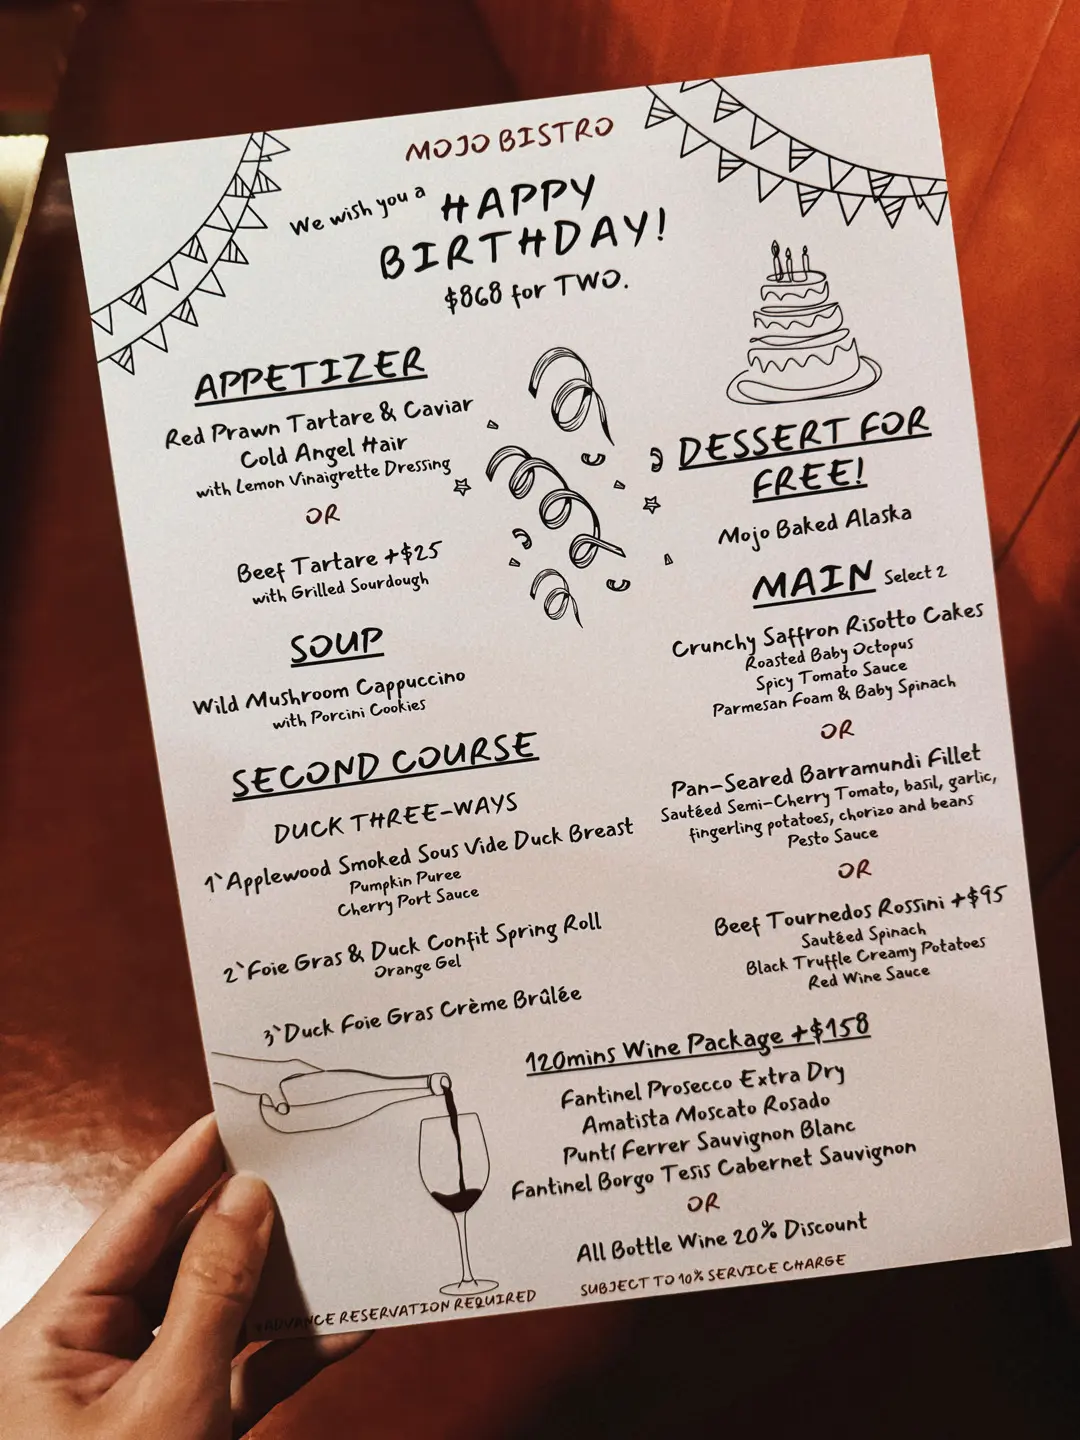 MOJO BISTRO
We wish you a HAPPY
BIRTHDAY!
$868 for TWO.
APPETIZER
Red Prawn Tartare & Caviar
Cold Angel Hair
with Lemon Vinaigrette Dressing
OR
Beef Tartare +$25
with Grilled Sourdough
SOUP
Wild Mushroom Cappuccino
with Porcini Cookies
SECOND COURSE
DUCK THREE-WAYS
1`Applewood Smoked Sous Vide Duck Breast
Pumpkin Puree
Cherry Port Sauce
2`Foie Gras & Duck Confit Spring Roll
Orange Gel
3`Duck Foie Gras Crème Brûlée
DESSERT FOR
FREE!
Mojo Baked Alaska
MAIN Select 2
Crunchy Saffron Risotto Cakes
Roasted Baby Octopus
Spicy Tomato Sauce
Parmesan Foam & Baby Spinach
OR
Pan-Seared Barramundi Fillet
Sautéed Semi-Cherry Tomato, basil, garlic,
fingerling potatoes, chorizo and beans
Pesto Sauce
OR
Beef Tournedos Rossini +$95
Sautéed Spinach
Black Truffle Creamy Potatoes
Red Wine Sauce
120mins Wine Package +$158
Fantinel Prosecco Extra Dry
Amatista Moscato Rosado
Puntí Ferrer Sauvignon Blanc
Fantinel Borgo Tesis Cabernet Sauvignon
OR
All Bottle Wine 20% Discount
*ADVANCE RESERVATION REQUIRED
SUBJECT TO 10% SERVICE CHARGE